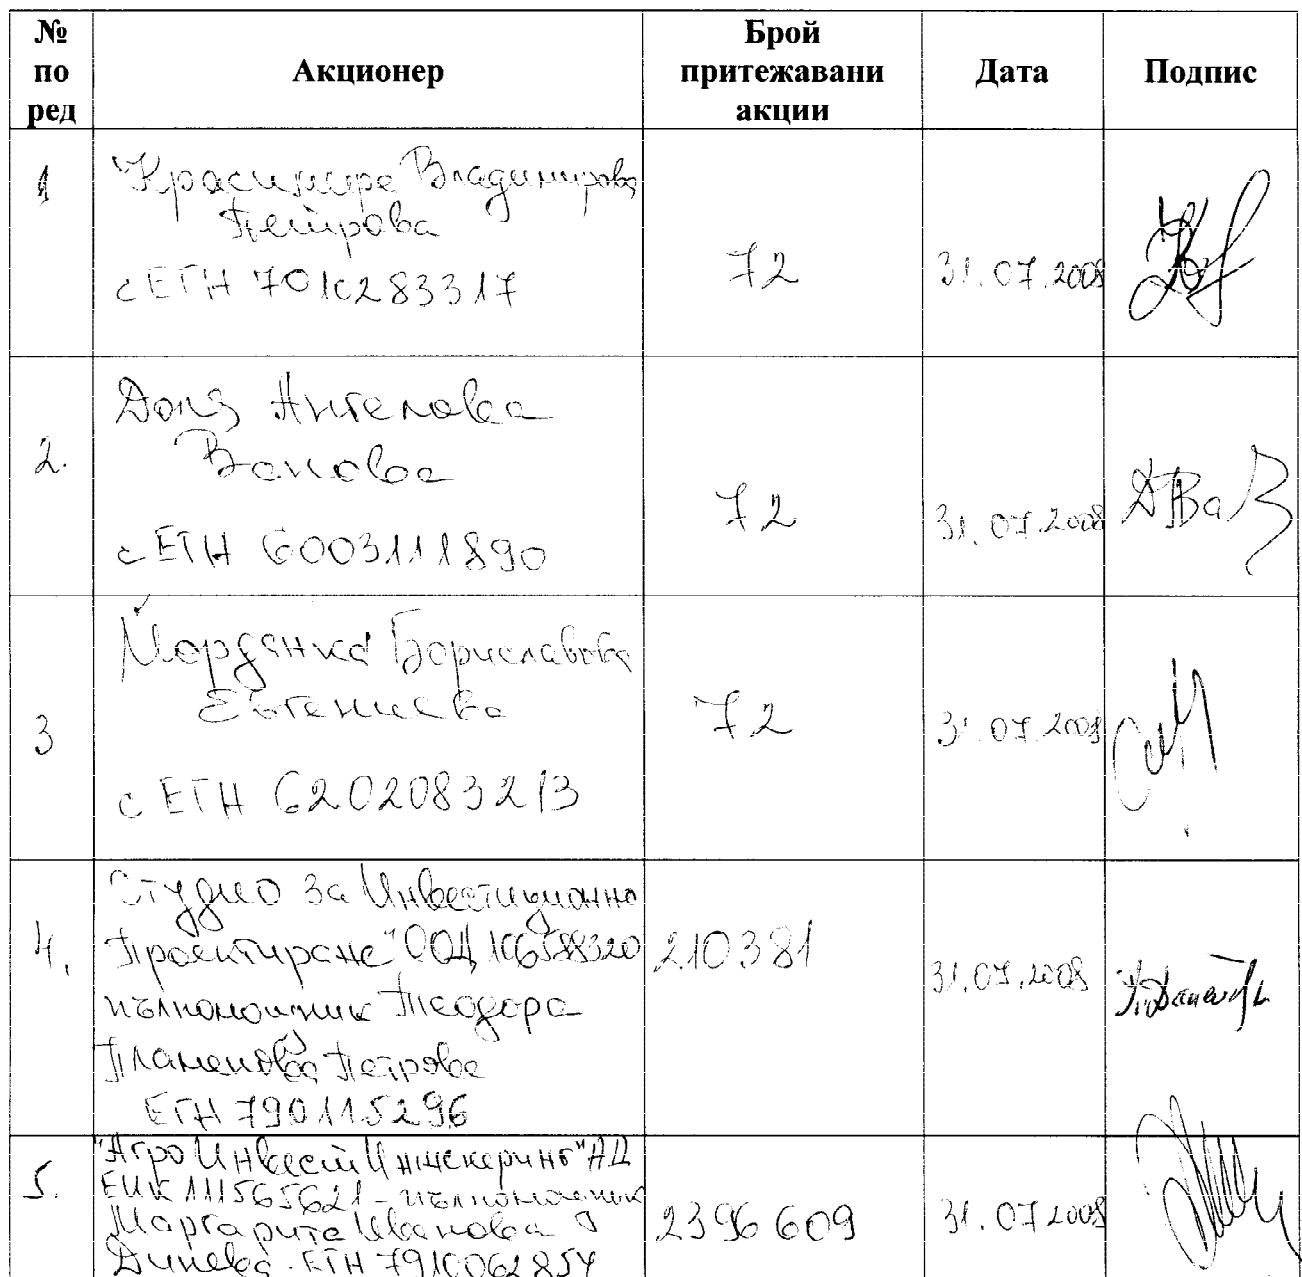 № по ред
Акционер
Брой притежавани акции
Дата
Подпис
1
Красимира Владимирова
Петрова
с ЕГН 7010283317
72
31.07.2008
2.
Доля Ангелова
Ванова
с ЕГН 6003111890
72
31.07.2008
3
Йорданка Бориславова
Евгениева
с ЕГН 6202083213
72
31.07.2008
4.
Студио за Инвестиционно
Проектиране" ООД 106588320
пълномощник Теодора
Пламенова Петрова
ЕГН 7901115296
210381
31.07.2008
5.
"Агро Инвест Инженеринг" АД
ЕИК 111565621 - пълномощник
Маргарита Иванова
Динева - ЕГН 7910062854
2396609
31.07.2008